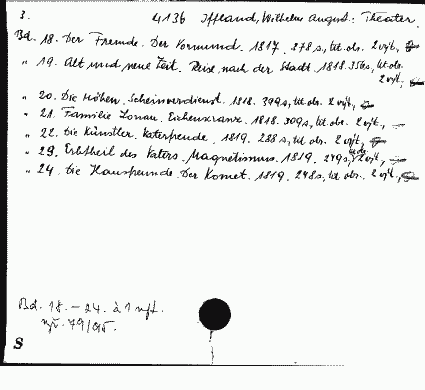 3. 4136 Iffland, Wilhelm August: Theater.
Bd. 18. Der Fremde. Der Vormund. 1817. 278 s, tit. obr. 2 výt.,
" 19. Alt und neue Zeit. Reise nach der Stadt. 1818. 356 s, tit. obr. 2 výt.,
" 20. Die Höhen. Scheinverdienst. 1818. 399 s, tit. obr. 2 výt.,
" 21. Familie Lonau. Eichenkranz. 1818. 309 s, tit. obr. 2 výt.,
" 22. Die Künstler. Vaterfreude. 1819. 288 s, tit. obr. 2 výt.,
" 23. Erbtheil des Vaters. Magnetismus. 1819. 279 s, 2 výt.,
" 24. Die Hausfreunde. Der Komet. 1819. 248 s, tit. obr. 2 výt.,
Bd. 18. – 24. à 1 výt.
79/95.
S